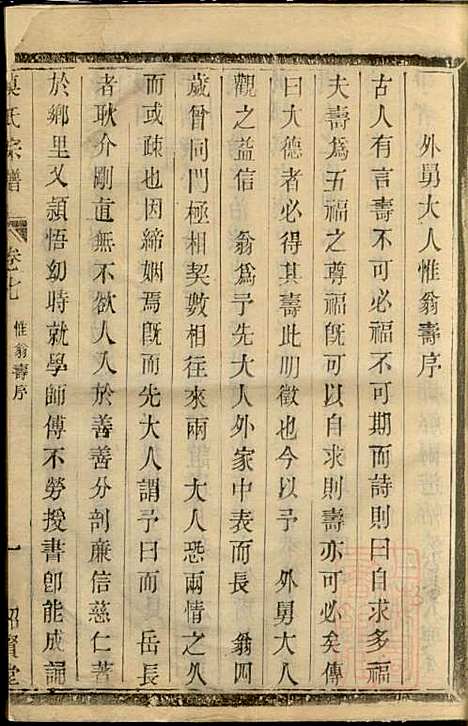 外舅大人惟翁壽序
古人有言壽不可必福不可期而詩則曰自求多福
夫壽爲五福之尊福旣可以自求則壽亦可必矣傳
曰大德者必得其壽此明徵也今以予 外舅大人
觀之益信 翁爲予先大人外家中表而長 翁四
歲曾同門極相契數相往來兩 大人恐兩情之久
而或疎也因締姻焉旣而先大人謂予曰而 岳長
者耿介剛直無不欲人入於善善分剖廉信慈仁著
於鄉里又頴悟幼時就學師傅不勞授書卽能成誦
氏宗譜 卷七 惟翁壽序 一 賢堂